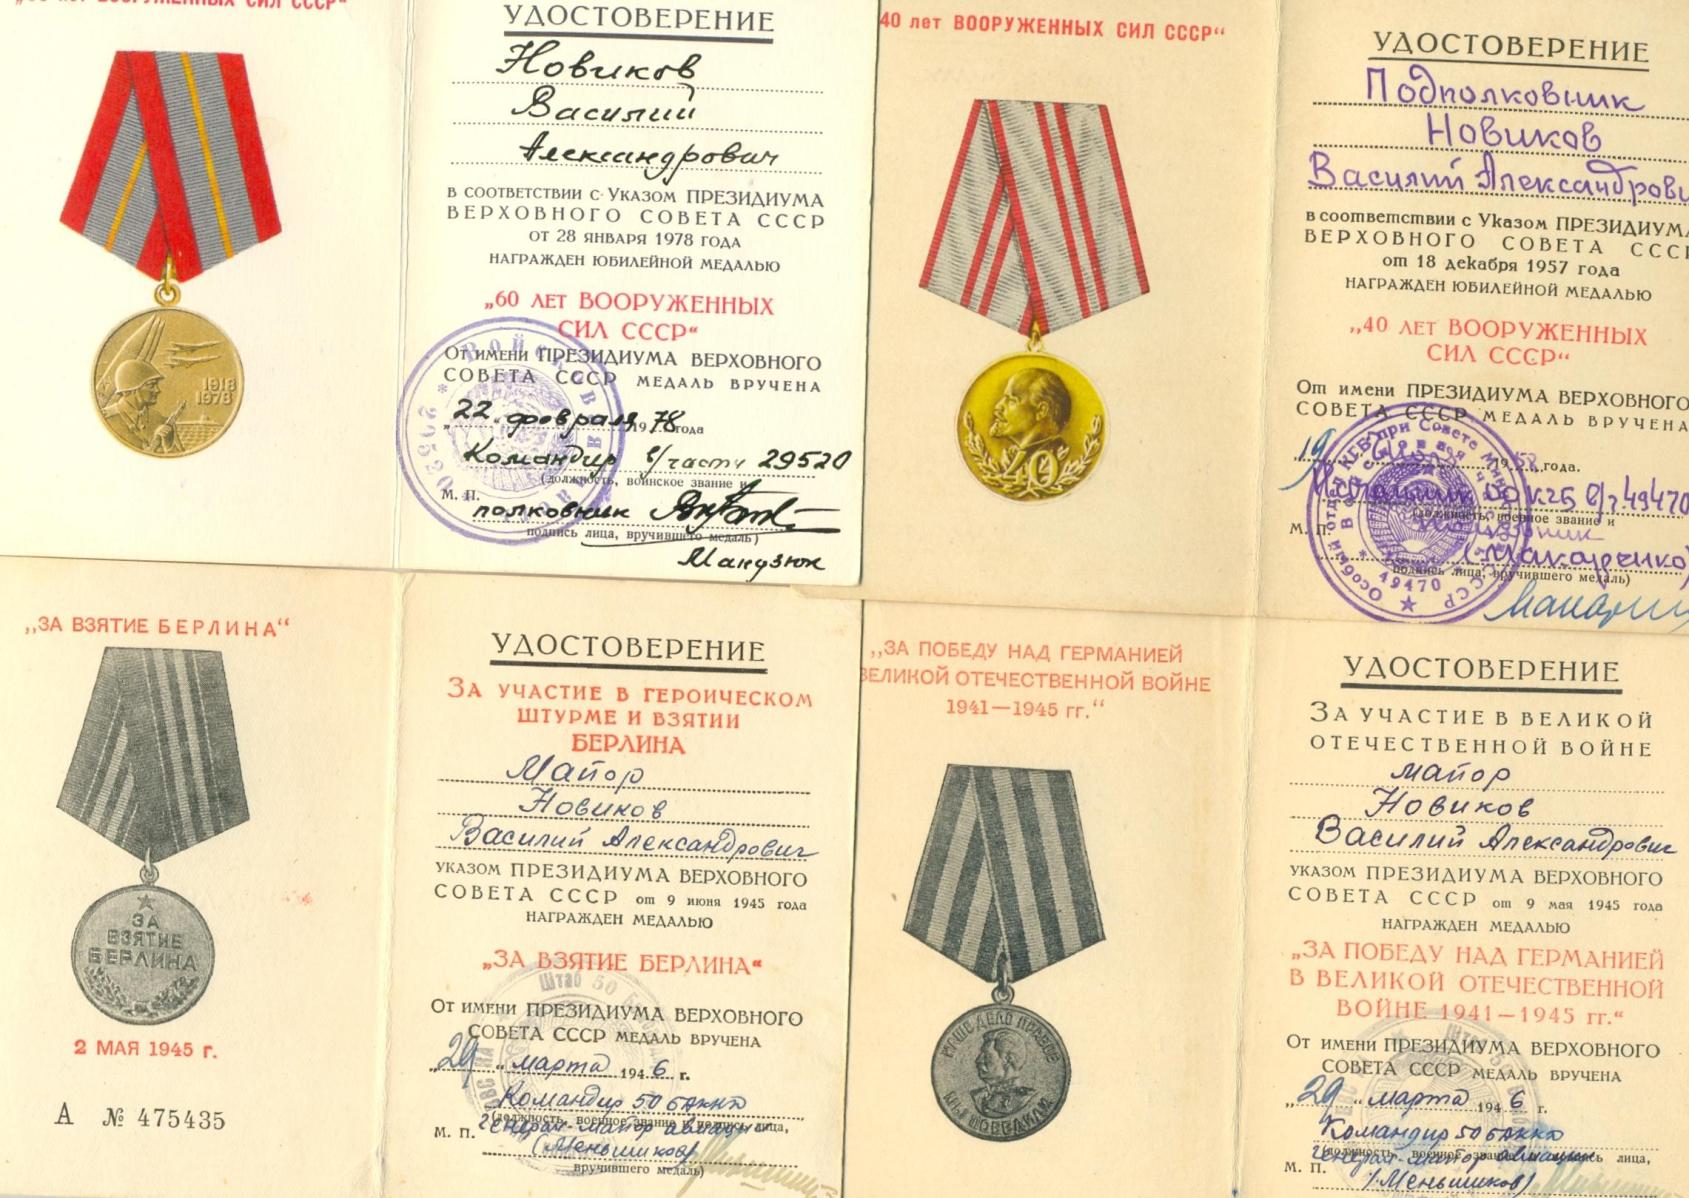 „60 лет ВООРУЖЕННЫХ СИЛ СССР“
УДОСТОВЕРЕНИЕ
Новиков
Василий
Александрович
в соответствии с Указом ПРЕЗИДИУМА
ВЕРХОВНОГО СОВЕТА СССР
от 28 января 1978 года
награжден юбилейной медалью
„60 лет ВООРУЖЕННЫХ
СИЛ СССР“
От имени ПРЕЗИДИУМА ВЕРХОВНОГО
СОВЕТА СССР медаль вручена
„22“ февраля 1978 года
Командир в/части 29520
(должность, воинское звание и
М. П.
полковник
подпись лица, вручившего медаль)
Мандзюк
1918
1978
29520
40 лет ВООРУЖЕННЫХ СИЛ СССР“
40
УДОСТОВЕРЕНИЕ
Подполковник
Новиков
Василий Александрови
в соответствии с Указом ПРЕЗИДИУМА
ВЕРХОВНОГО СОВЕТА СССР
от 18 декабря 1957 года
награжден юбилейной медалью
„40 лет ВООРУЖЕННЫХ
СИЛ СССР“
От имени ПРЕЗИДИУМА ВЕРХОВНОГО
СОВЕТА СССР медаль вручена
19 года.
Начальник ОО КГБ в/ч 49470
(должность, военное звание и
М. П.
(Макарченко)
подпись лица, вручившего медаль)
Особый отдел КГБ при Совете Мин СССР
49470
„ЗА ВЗЯТИЕ БЕРЛИНА“
ЗА
ВЗЯТИЕ
БЕРЛИНА
2 МАЯ 1945 г.
А № 475435
УДОСТОВЕРЕНИЕ
За участие в героическом
штурме и взятии
БЕРЛИНА
Майор
Новиков
Василий Александрович
указом ПРЕЗИДИУМА ВЕРХОВНОГО
СОВЕТА СССР от 9 июня 1945 года
награжден медалью
„ЗА ВЗЯТИЕ БЕРЛИНА“
От имени ПРЕЗИДИУМА ВЕРХОВНОГО
СОВЕТА СССР медаль вручена
„29“ марта 1946 г.
Командир 50 баккд
(должность, военное звание и подпись лица,
М. П.
генерал-майор авиации
(Меньшиков)
вручившего медаль)
Штаб 50
„ЗА ПОБЕДУ НАД ГЕРМАНИЕЙ
ВЕЛИКОЙ ОТЕЧЕСТВЕННОЙ ВОЙНЕ
1941—1945 гг.“
НАШЕ ДЕЛО ПРАВОЕ
МЫ ПОБЕДИЛИ
УДОСТОВЕРЕНИЕ
За участие в Великой
Отечественной войне
майор
Новиков
Василий Александрович
указом ПРЕЗИДИУМА ВЕРХОВНОГО
СОВЕТА СССР от 9 мая 1945 года
награжден медалью
„ЗА ПОБЕДУ НАД ГЕРМАНИЕЙ
В ВЕЛИКОЙ ОТЕЧЕСТВЕННОЙ
ВОЙНЕ 1941—1945 гг.“
От имени ПРЕЗИДИУМА ВЕРХОВНОГО
СОВЕТА СССР медаль вручена
„29“ марта 1946 г.
Командир 50 баккд
(должность, военное звание и подпись лица,
М. П.
генерал-майор авиации
(Меньшиков)